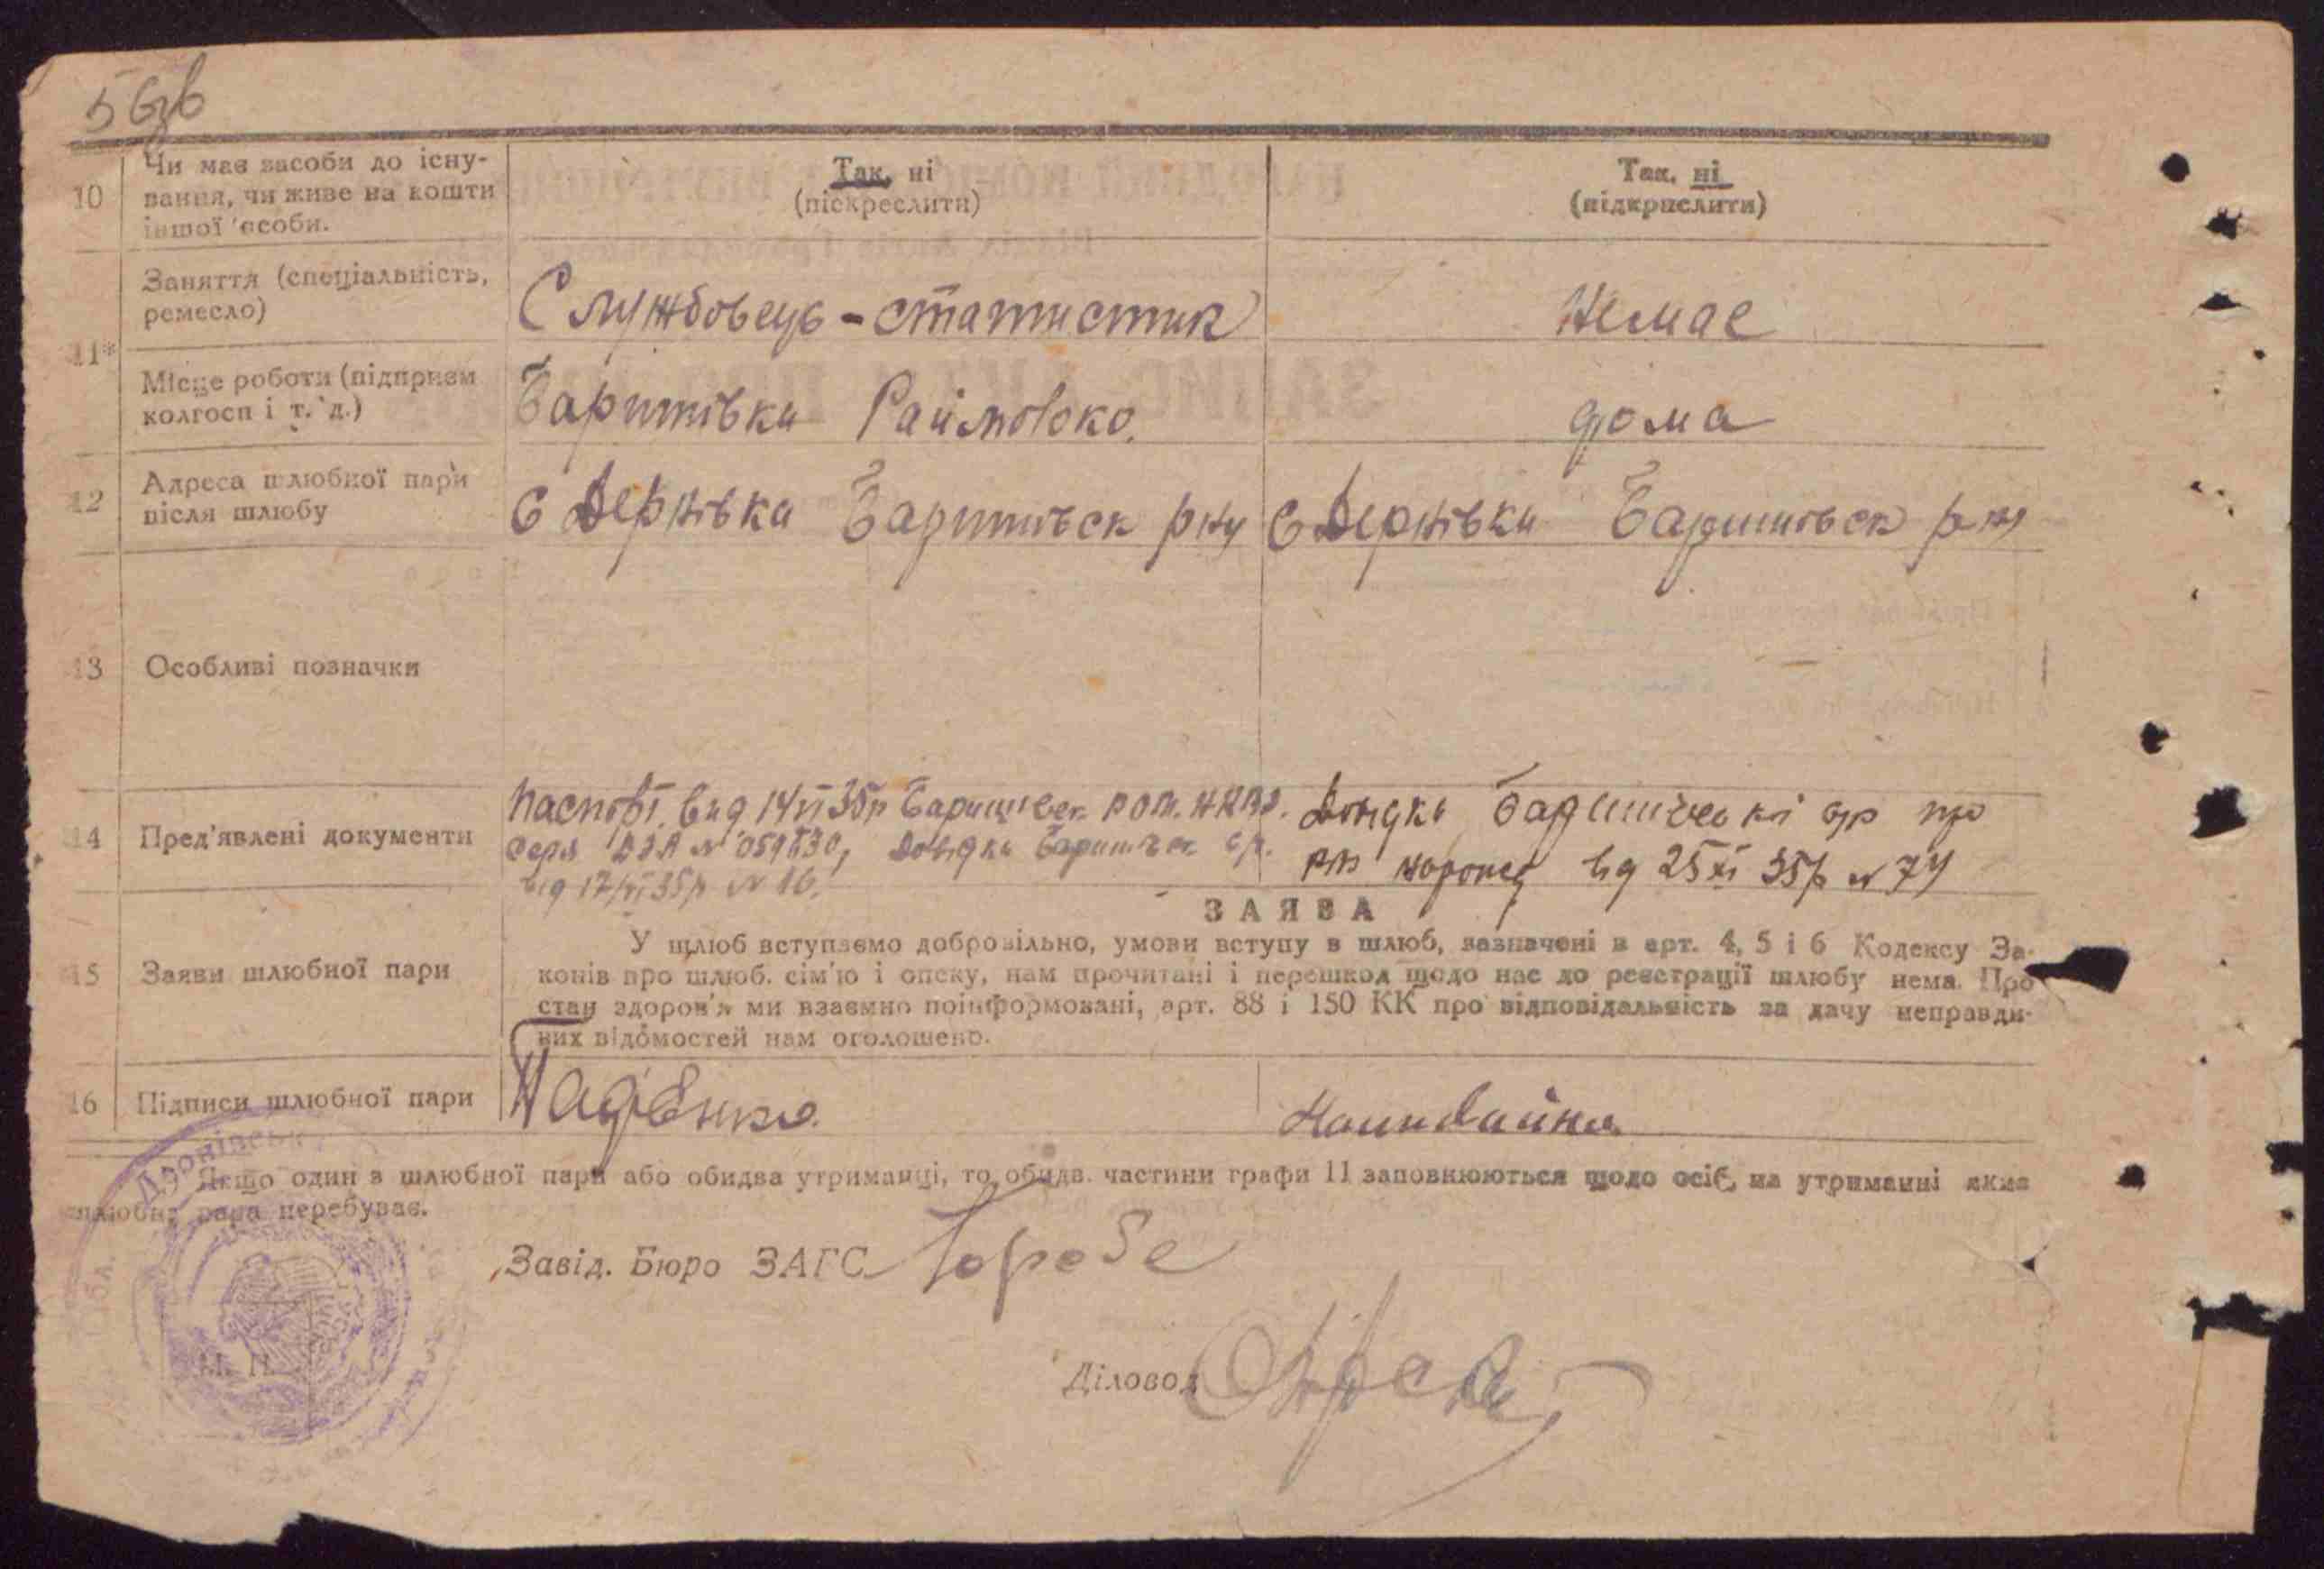 56зв
10
Чи має засоби до існу-
вання, чи живе на кошти
іншої особи.
Так, ні
(піскреслити)
Так, ні
(підкрислити)
11*
Заняття (спеціальність,
ремесло)
Службовець - статистик
Немає
Місце роботи (підприєм
колгосп і т. д.)
Баришівка
дома
12
Адреса шлюбної пари
після шлюбу
с Дернівка Баришівск рну
с Дернівка Баришівск рну
13
Особливі позначки
14
Пред'явлені документи
Паспорт. від 14 VI 35р Баришівск РОМ. НКВД.
Серя № 059830, Довідка Баришівск с/р.
від 17/VI 35р № 16.
Довідка Баришівської с/р про
від 25 XI 35р № 74
ЗАЯВА
15
Заяви шлюбної пари
У шлюб вступаємо добровільно, умови вступу в шлюб, зазначені в арт. 4, 5 і 6 Кодексу За-
конів про шлюб. сім'ю і опеку, нам прочитані і перешкод щодо нас до реєстрації шлюбу нема. Про
стан здоров'я ми взаємно поінформовані, арт. 88 і 150 КК про відповідальність за дачу неправди-
вих відомостей нам оголошено.
16
Підписи шлюбної пари
Наливайна
Якщо один з шлюбної пари або обидва утриманці, то обидв. частини графи 11 заповнюються щодо осіб, на утриманні яких
шлюбна пара перебуває.
Завід. Бюро ЗАГС
М. П.
Діловод